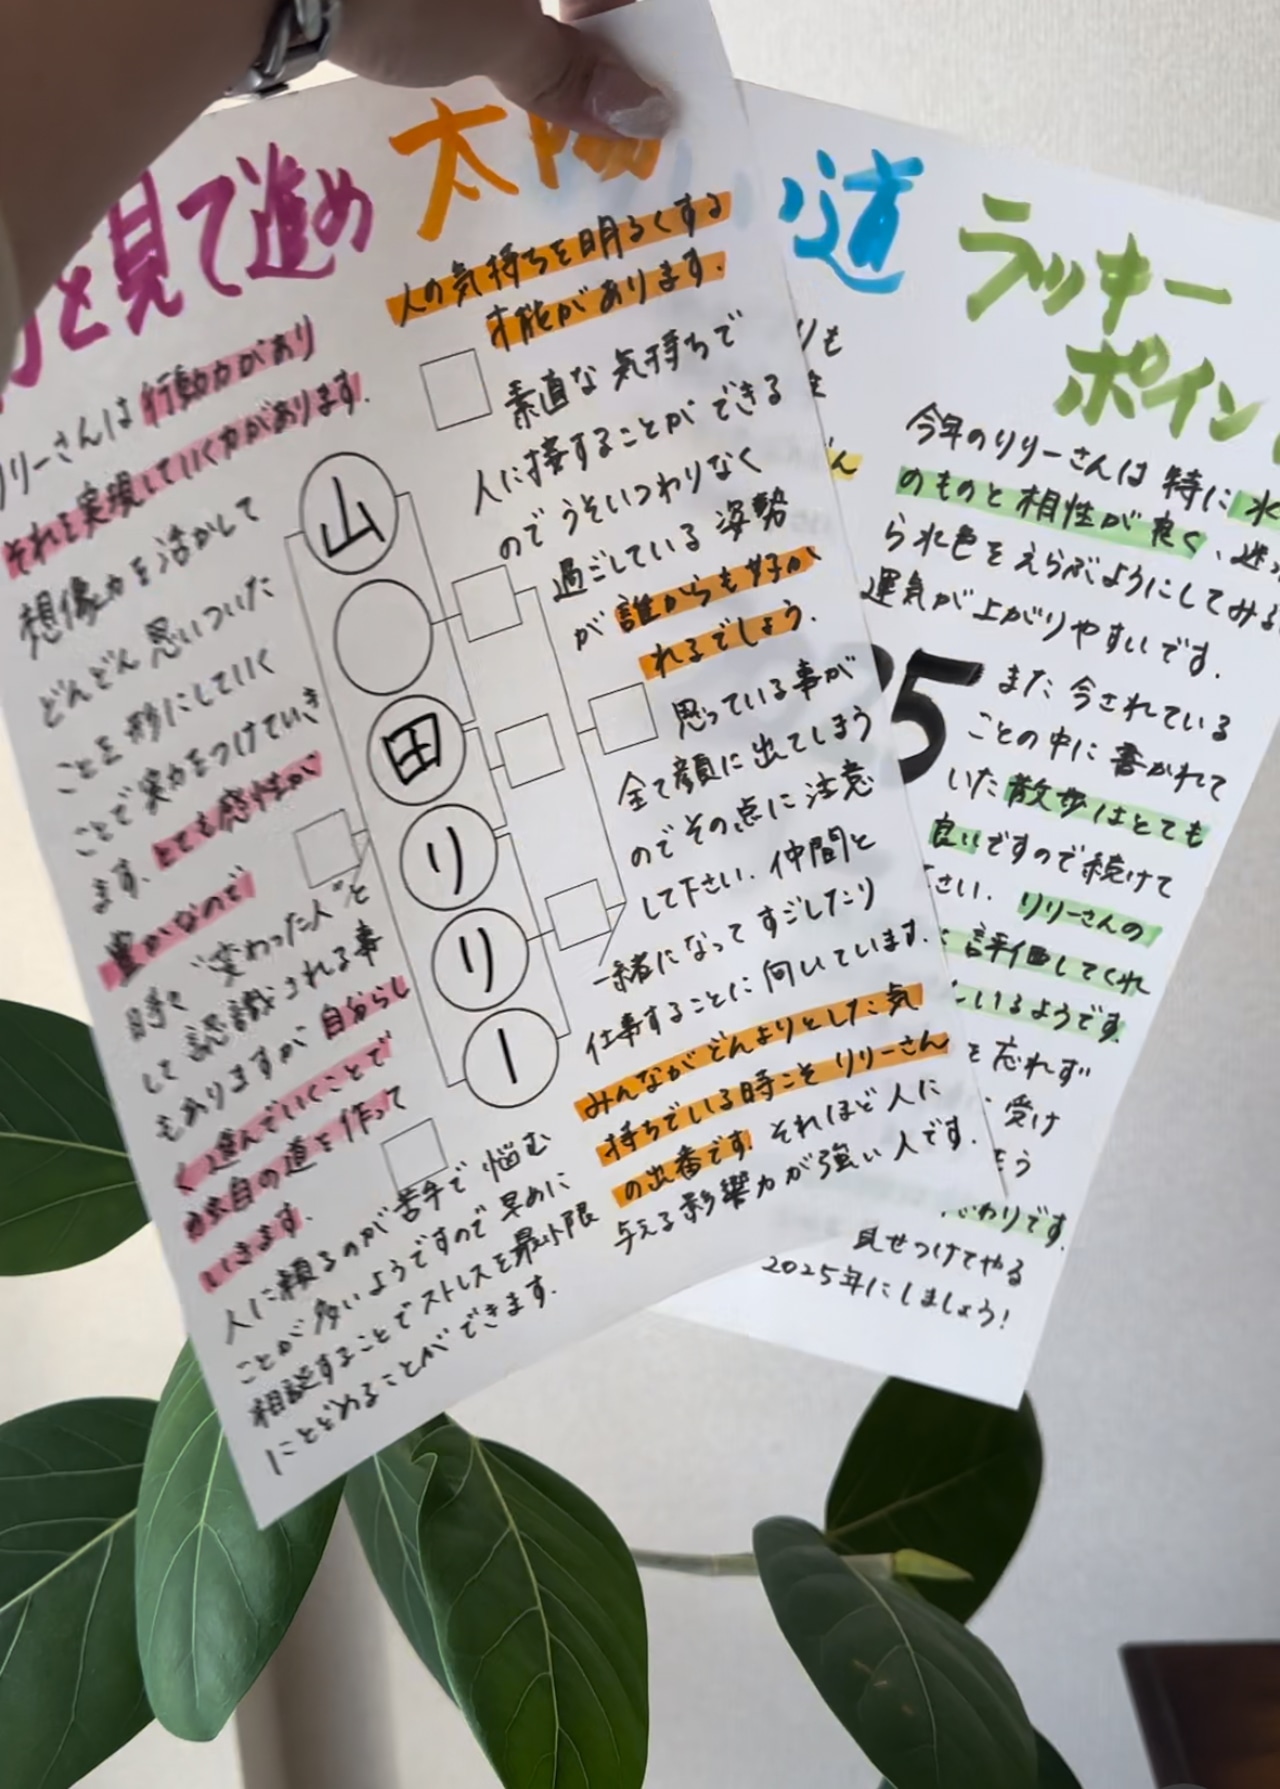 を見て進め
リリーさんは行動力があり
それを実現していく力があります.
想像力を活かして
どんどん思いついた
ことを形にしていく
ことで実力をつけていき
ます. とても感性が
豊かなので
時々"変わった人"と
して認識される事
もありますが自分らし
く進んでいくことで
独自の道を作って
いきます.
人に頼るのが苦手で悩む
ことが多いようですので早めに
相談することでストレスを最小限
にとどめることができます.
山
田
リ
リ
ー
太陽
人の気持ちを明るくする
才能があります.
素直な気持ちで
人に接することができる
のでうそいつわりなく
過ごしている姿勢
が誰からも好か
れるでしょう.
思っている事が
全て顔に出てしまう
のでその点に注意
して下さい. 仲間と
一緒になってすごしたり
仕事することに向いています.
みんながどんよりとした気
持ちでいる時こそリリーさん
の出番です! それほど人に
与える影響力が強い人です.
い道
りも
ん
5
ラッキー
ポイン
今年のリリーさんは特に水
のものと相性が良く、迷っ
ら水色をえらぶようにしてみる
運気が上がりやすいです.
また今されている
ことの中に書かれて
いた散歩はとても
良いですので続けて
さい. リリーさんの
評価してくれ
いるようです.
を忘れず
受け
う
わりです.
見せつけてやる
2025年にしましょう!